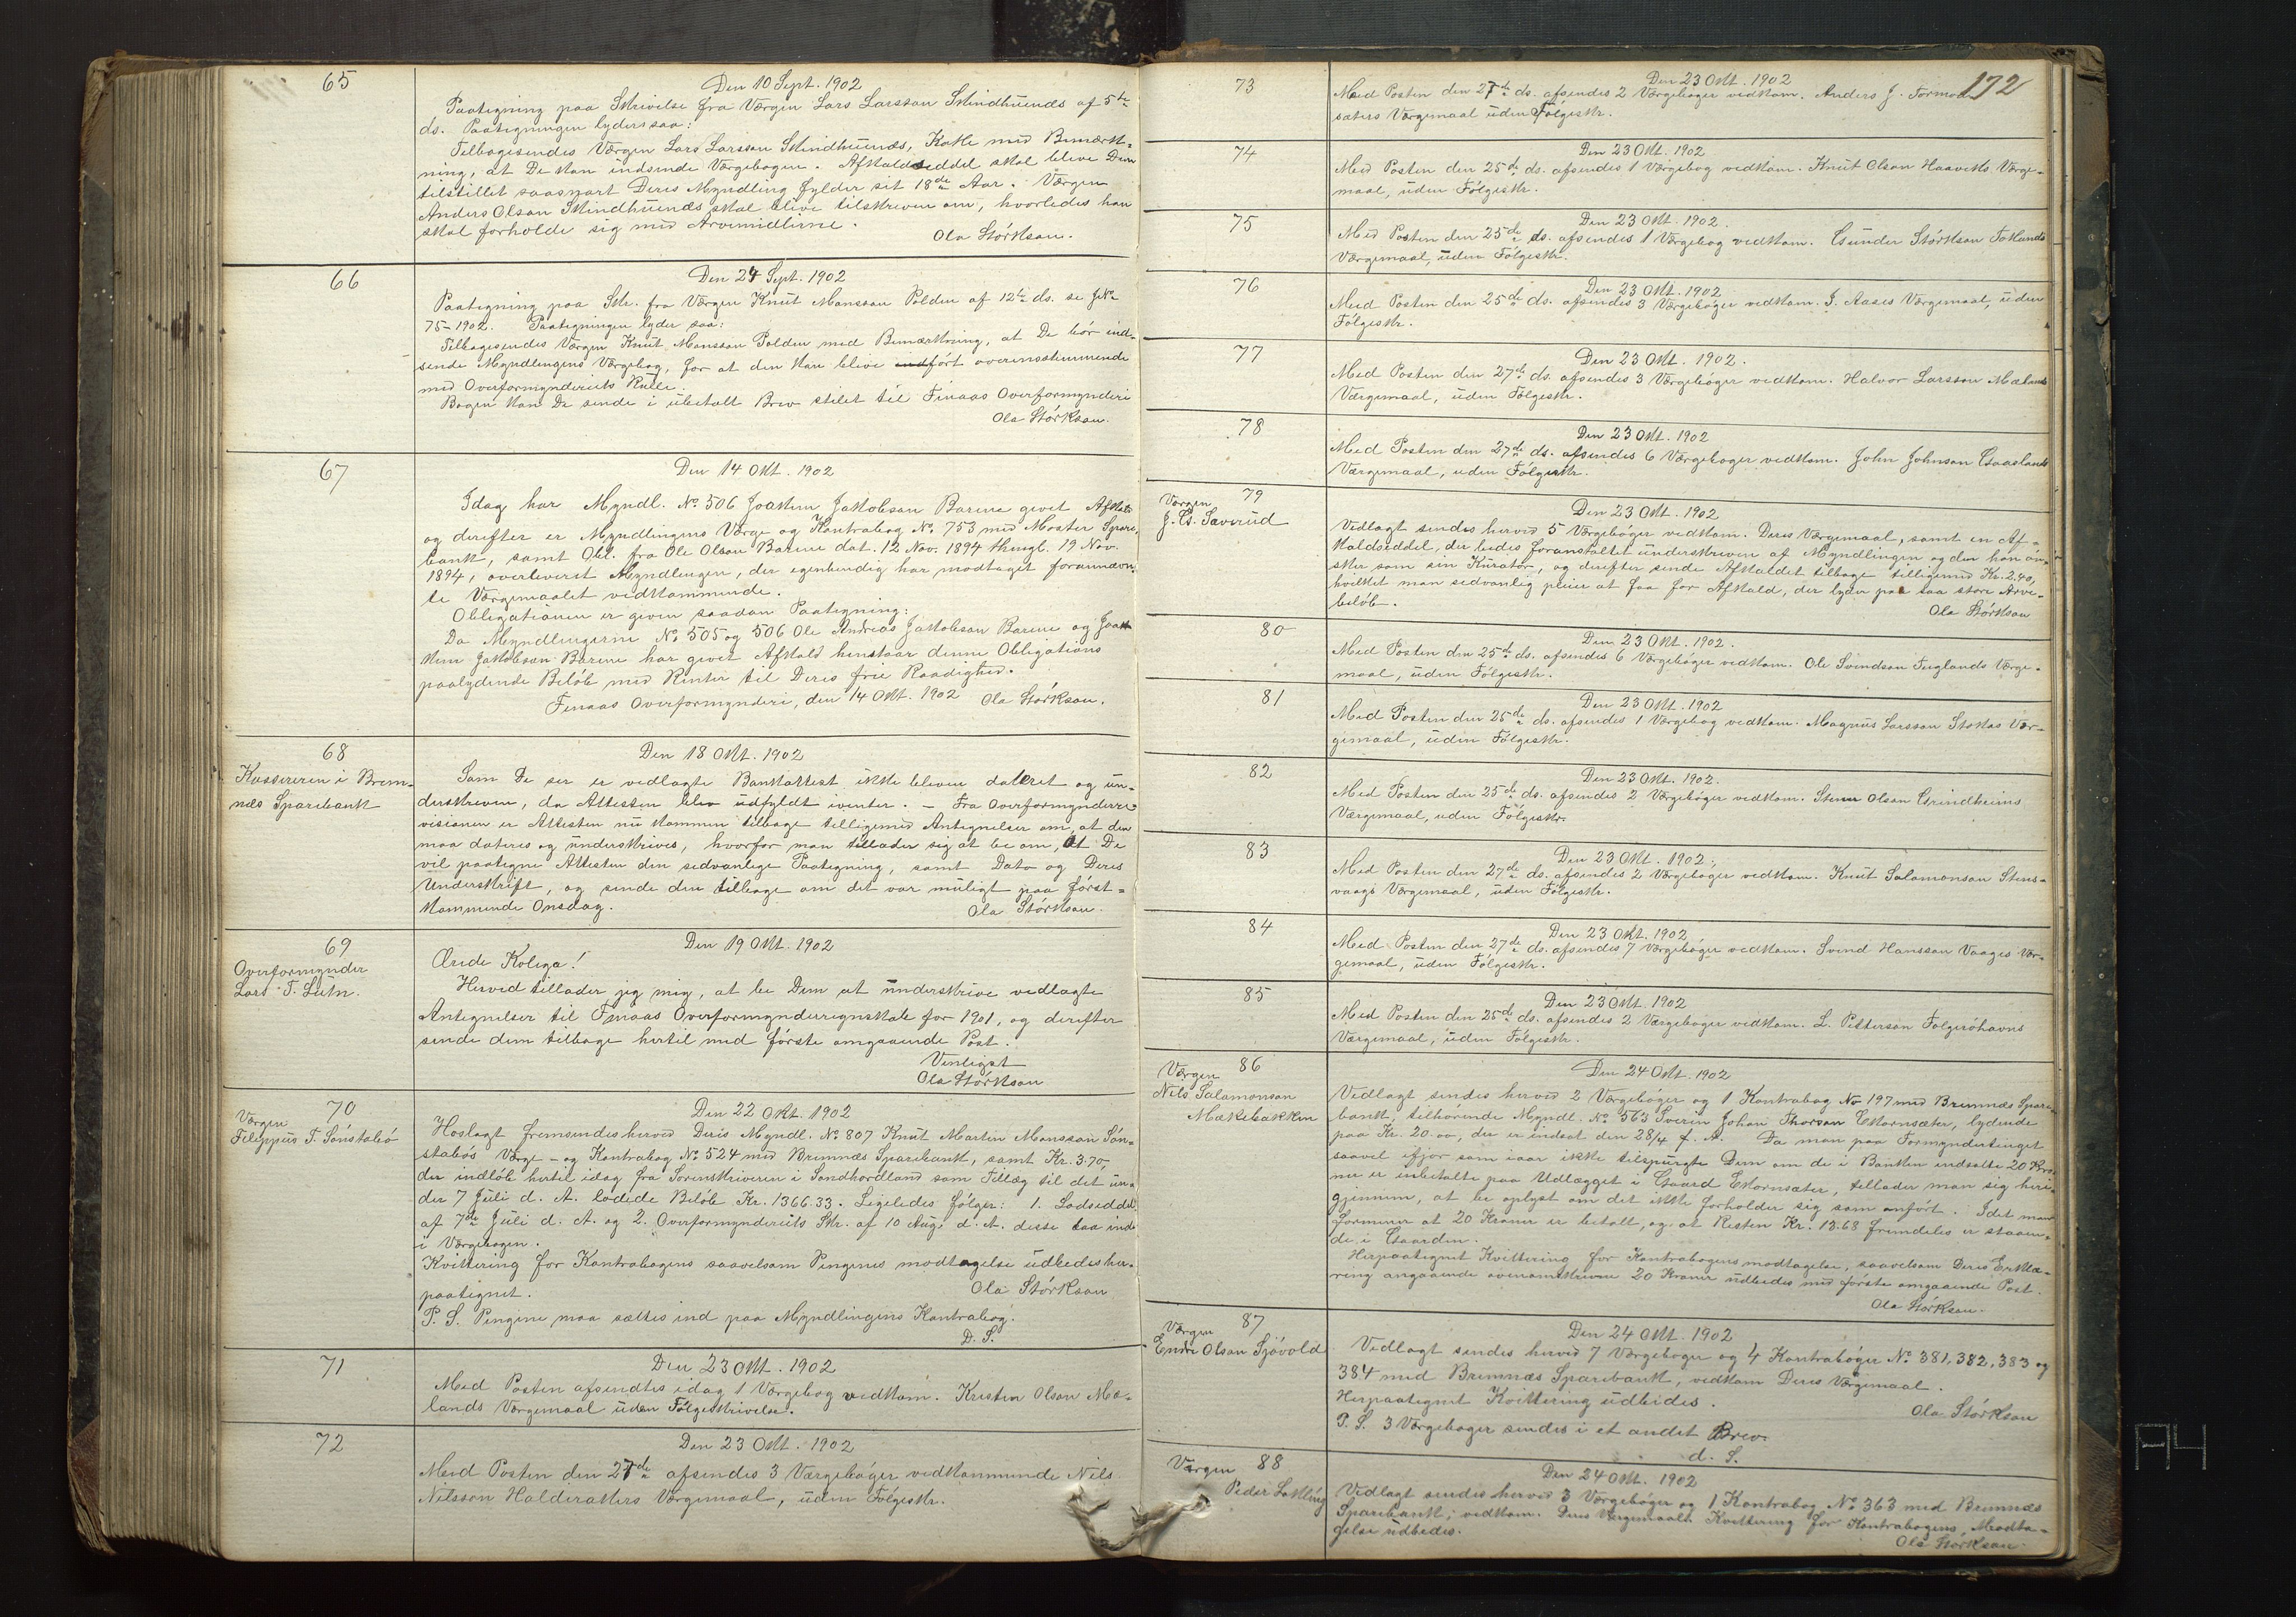 65
Den 10 Sept. 1902
Paategning paa Skrivelse fra Værgen Lars Larsson Skindhuenæs af 5te
ds. Paategningen lyder saa:
Tilbagesendes Værgen Lars Larsson Skindhuenæs, med Bemærk-
ning, at De kan indsende Værgebogen. Afkaldseddel skal blive Dem
tilstillet saasnart Deres Myndling fylder sit 18de Aar. Værgen
Anders Olson Skindhuenæs skal blive tilskreven om, hvorledes han
skal forholde sig med Arvemidlerne.
Ola Störkson.
66
Den 24 Sept. 1902
Paategning paa Skr. fra Værgen Knut Monsson Polden af 12te ds. se J.No
75-1902. Paategningen lyder saa:
Tilbagesendes Værgen Knut Monsson Polden med Bemærkning, at De bör ind-
sende Myndlingens Værgebog, for at den kan blive indfört overensstemmende
med Overformynderiets Rulle.
Bogen kan De sende i ubetalt Brev stilet til Finaas Overformynderi
Ola Störkson.
67
Den 14 Okt. 1902
Idag har Myndl. No. 506 Joakim Jakobson Barane givet Afkald
og derefter er Myndlingens Værge og Kontrabog No. 753 med Moster Spare-
bank, samt Obl. fra Ole Olson Barane dat. 12 Nov. 1894 thingl. 19 Nov.
1894, overleveret Myndlingen, der egenhendig har modtaget forannævn-
te Værgemaalet vedkommende.
Obligationen er given saadan Paategning:
Da Myndlingerne No. 505 og 506 Ole Andreas Jakobson Barane og Joa-
kim Jakobson Barane har givet Afkald henstaar denne Obligations
paalydende Belöb med Renter til Deres frie Raadighed.
Finaas Overformynderi, den 14 Okt. 1902 Ola Störkson.
68
Kassereren i Brem-
næs Sparebank
Den 18 Okt. 1902
Som De ser er vedlagte Bankattest ikke bleven dateret og un-
derskreven, da Attesten blev udfyldt ivinter. - Fra Overformynderre-
visionen er Attesten nu kommen tilbage tilligemed Antegnelser om, at den
maa dateres og underskrives, hvorfor man tillader sig at be om, at De
vil paategne Attesten den sedvanlige Paategning, samt Dato og Deres
Underskrift, og sende den tilbage om det var muligt paa först-
kommende Onsdag.
Ola Störkson.
69
Overformynder
Lars T. Lütn.
Den 19 Okt. 1902
Ærede Kolega!
Herved tillader jeg mig, at be Dem at underskrive vedlagte
Antegnelser til Finaas Overformynderregnskab for 1901, og derefter
sende dem tilbage hertil med förste omgaaende Post.
Venligst
Ola Störkson
70
Værgen
Filippus T. Sönstabö
Den 22 Okt. 1902
Hoslagt fremsendes herved Deres Myndl. No. 807 Knut Martin Monsson Sön-
stabös Værge- og Kontrabog No. 524 med Bremnæs Sparebank, samt Kr. 3.70,
der indlöb hertil idag fra Sorenskriveren i Söndhordland som Tillæg til det un-
der 7 Juli d. A. lodede Belöb Kr. 1366.33. Ligeledes fölger: 1. Lodseddel
af 7de Juli d. A. og 2. Overformynderiets Skr. af 10 Aug. d. A. disse laa inde
i Værgebogen.
Kvittering for Kontrabogens saavelsom Pengenes modtagelse udbedes her-
paategnet.
Ola Störkson
P. S. Pengene maa sættes ind paa Myndlingens Kontrabog.
D. S.
71
Den 23 Okt. 1902
Med Posten afsendtes idag 1 Værgebog vedkom. Kristen Olson Mæ-
lands Værgemaal uden Fölgeskrivelse.
72
Den 23 Okt. 1902
Med Posten den 27de afsendes 3 Værgeböger vedkommende Nils
Nilsson Halderakers Værgemaal, uden Fölgeskr.
172
73
Den 23 Okt. 1902
Med Posten den 27de ds. afsendes 2 Værgeböger vedkom. Anders J. Tormod-
sæters Værgemaal uden Fölgeskr.
74
Den 23 Okt. 1902
Med Posten den 25de ds. afsendes 1 Værgebog vedkom. Knut Olson Haaviks Værge-
maal, uden Fölgeskr.
75
Den 23 Okt. 1902.
Med Posten den 25de ds. afsendes 1 Værgebog vedkom. Gunder Störkson Folkunds
Værgemaal, uden Fölgeskr.
76
Den 23 Okt. 1902
Med Posten den 25de ds. afsendes 3 Værgeböger vedkom. J. Aases Værgemaal, uden
Fölgeskr.
77
Den 23 Okt. 1902.
Med Posten den 27de ds. afsendes 3 Værgeböger vedkom. Halvor Larsson Mælands
Værgemaal, uden Fölgeskr.
78
Den 23 Okt. 1902
Med Posten den 27de ds. afsendes 6 Værgeböger vedkom. John Johnson Gaaslands
Værgemaal, uden Fölgeskr.
79
Værgen
J. G. Saverud
Den 23 Okt. 1902
Vedlagt sendes herved 5 Værgeböger vedkom. Deres Værgemaal, samt en Af-
kaldseddel, der bedes foranstaltet underskreven af Myndlingen og den han ön-
sker som sin Kurator, og derefter sende Afkaldet tilbage tilligemed Kr. 2.40,
hvilket man sedvanlig pleier at faa for Afkald, der lyder paa saa store Arve-
belöb.
Ola Störkson
80
Den 23 Okt. 1902.
Med Posten den 25de ds. afsendes 6 Værgeböger vedkom. Ole Svendson Fuglands Værge-
maal, uden Fölgeskr.
81
Den 23 Okt. 1902
Med Posten den 25de ds. afsendes 1 Værgebog vedkom. Magnus Larsson Stokas Vær-
gemaal, uden Fölgeskr.
82
Den 23 Okt. 1902.
Med Posten den 25de ds. afsendes 2 Værgeböger vedkom. Stener Olson Grindheims
Værgemaal, uden Fölgeskr.
83
Den 23 Okt. 1902.
Med Posten den 27de ds. afsendes 2 Værgeböger vedkom. Knut Salamonson Stens-
vaags Værgemaal, uden Fölgeskr.
84
Den 23 Okt. 1902
Med Posten den 27de ds. afsendes 7 Værgeböger vedkom. Svend Hansson Vaages Vær-
gemaal, uden Fölgeskr.
85
Den 23 Okt. 1902
Med Posten den 25de ds. afsendes 2 Værgeböger vedkom. L. Petterson Folgeröhavns
Værgemaal, uden Fölgeskr.
86
Værgen
Nils Salamonson
Mækebakken
Den 24 Okt. 1902
Vedlagt sendes herved 2 Værgeböger og 1 Kontrabog No 197 med Bremnæs Spare-
bank tilhörende Myndl. No. 563 Sverin Johan Thorson Ekornsæter, lydende
paa Kr. 20.00, der er indsat den 28/4 f. A. Da man paa Formynderthinget
saavel ifjor som iaar ikke tilspurgte Dem om de i Banken indsatte 20 Kro-
ner er indbetalte paa Udlægget i Gaard Ekornsæter, tillader man sig heri-
gjennem, at be oplyst om det ikke forholder sig som anfört. Idet man
formener at 20 Kroner er betalt, og at Resten Kr. 13.68 fremdeles er staaen-
de i Gaarden.
Herpaategnet Kvittering for Kontrabogens modtagelse, saavelsom Deres Erklæ-
ring angaaende ovenomskrevne 20 Kroner udbedes med förste omgaaende Post.
Ola Störkson.
87
Værgen
Endre Olson Sjövold
Den 24 Okt. 1902
Vedlagt sendes herved 7 Værgeböger og 4 Kontraböger No. 381, 382, 383 og
384 med Bremnæs Sparebank, vedkom Deres Værgemaal.
Herpaategnet Kvittering udbedes.
Ola Störkson
P. S. 3 Værgeböger sendes i et andet Brev.
d. S.
88
Værgen
Peder Løkling
Den 24 Okt. 1902
Vedlagt sendes herved 3 Værgeböger og 1 Kontrabog No. 363 med Bremnæs
Sparebank, vedkom. Deres Værgemaal. Kvittering for Kontrabogens Modta-
gelse udbedes.
Ola Störkson.